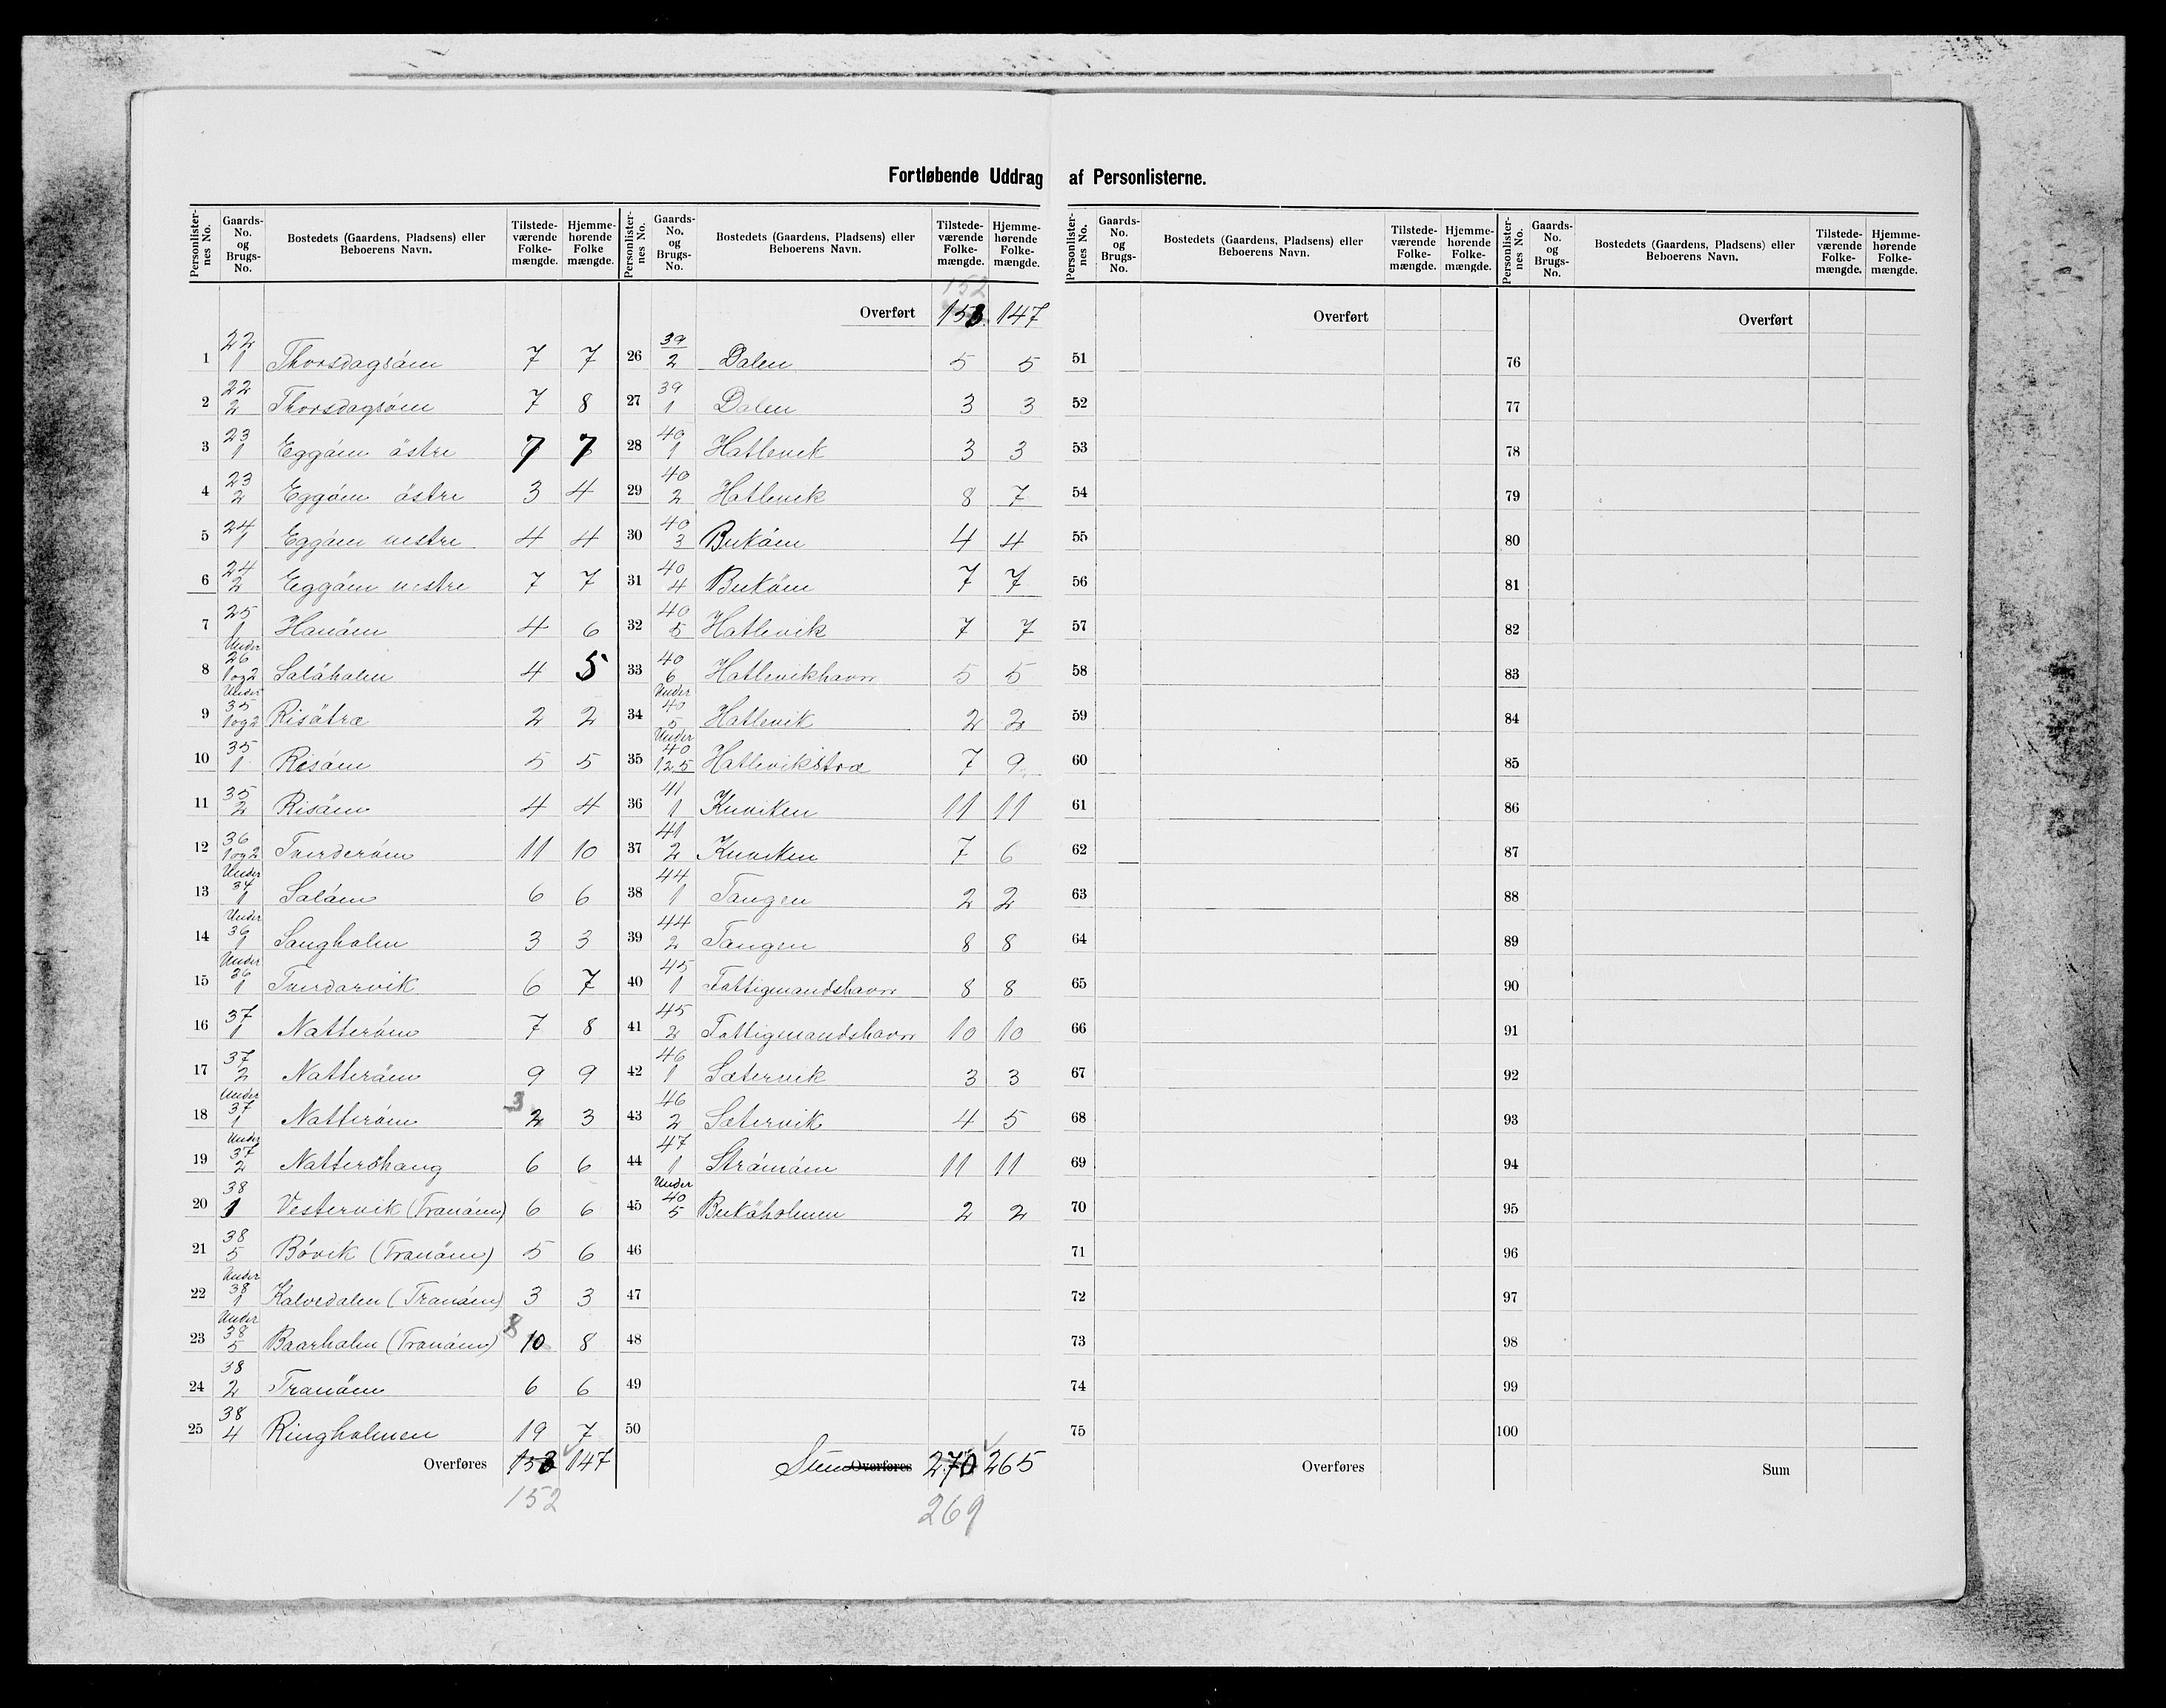 Fortløbende Uddrag af Personlisterne.
Personlister-nes No. | Gaards-No. og Brugs-No. | Bostedets (Gaardens, Pladsens) eller Beboerens Navn. | Tilstede-værende Folke-mængde. | Hjemme-hørende Folke mængde.
1 22 1 Thorsdagsöien 7 7
2 22 2 Thorsdagsöien 7 8
3 23 1 Eggöien östre 7 7
4 23 2 Eggöien östre 3 4
5 24 1 Eggöien vestre 4 4
6 24 2 Eggöien vestre 7 7
7 25 1 Hanöien 4 6
8 Under 26 1 og 2 Salöhalen 4 5
9 Under 35 1 og 2 Risötræ 2 2
10 35 1 Risöien 5 5
11 35 2 Risöien 4 4
12 36 1 og 2 Tverderöien 11 10
13 Under 34 1 Salöien 6 6
14 Under 36 1 Sangholm 3 3
15 Under 36 1 Tverdarvik 6 7
16 37 1 Natteröien 7 8
17 37 2 Natteröien 9 9
18 Under 37 1 Natteröien 3 2 3
19 Under 37 2 Natteröhaug 6 6
20 38 1 Vestervik (Tranöien) 6 6
21 38 5 Bövik (Tranöien) 5 6
22 Under 38 1 Kalvedalen (Tranöien) 3 3
23 Under 38 5 Baarhalen (Tranöien) 8 10 8
24 38 2 Tranöien 6 6
25 38 4 Ringholmen 19 7
Overføres 153 147
152
Personlister-nes No. | Gaards-No. og Brugs-No. | Bostedets (Gaardens, Pladsens) eller Beboerens Navn. | Tilstede-værende Folke-mængde. | Hjemme-hørende Folke-mængde.
152
Overført 153 147
26 39 2 Dalen 5 5
27 39 1 Dalen 3 3
28 40 1 Hatlevik 3 3
29 40 2 Hatlevik 8 7
30 40 3 Buköien 4 4
31 40 4 Buköien 7 7
32 40 5 Hatlevik 7 7
33 40 6 Hatlevikhavn 5 5
34 Under 40 5 Hatlevik 2 2
35 Under 40 1,2,5 Hatlevikstræ 7 9
36 41 1 Kuviken 11 11
37 41 2 Kuviken 7 6
38 44 1 Tangen 2 2
39 44 2 Tangen 8 8
40 45 1 Fattigmandshavn 8 8
41 45 2 Fattigmandshavn 10 10
42 46 1 Sætervik 3 3
43 46 2 Sætervik 4 5
44 47 1 Strömöien 11 11
45 Under 40 5 Buköholmen 2 2
46
47
48
49
50
Sum Overføres 270 265
269
Personlister-nes No. | Gaards-No. og Brugs-No. | Bostedets (Gaardens, Pladsens) eller Beboerens Navn. | Tilstede-værende Folke-mængde. | Hjemme-hørende Folke-mængde.
Overført
51
52
53
54
55
56
57
58
59
60
61
62
63
64
65
66
67
68
69
70
71
72
73
74
75
Overføres
Personlister-nes No. | Gaards-No. og Brugs-No. | Bostedets (Gaardens, Pladsens) eller Beboerens Navn. | Tilstede-værende Folke-mængde. | Hjemme-hørende Folke-mængde.
Overført
76
77
78
79
80
81
82
83
84
85
86
87
88
89
90
91
92
93
94
95
96
97
98
99
100
Sum